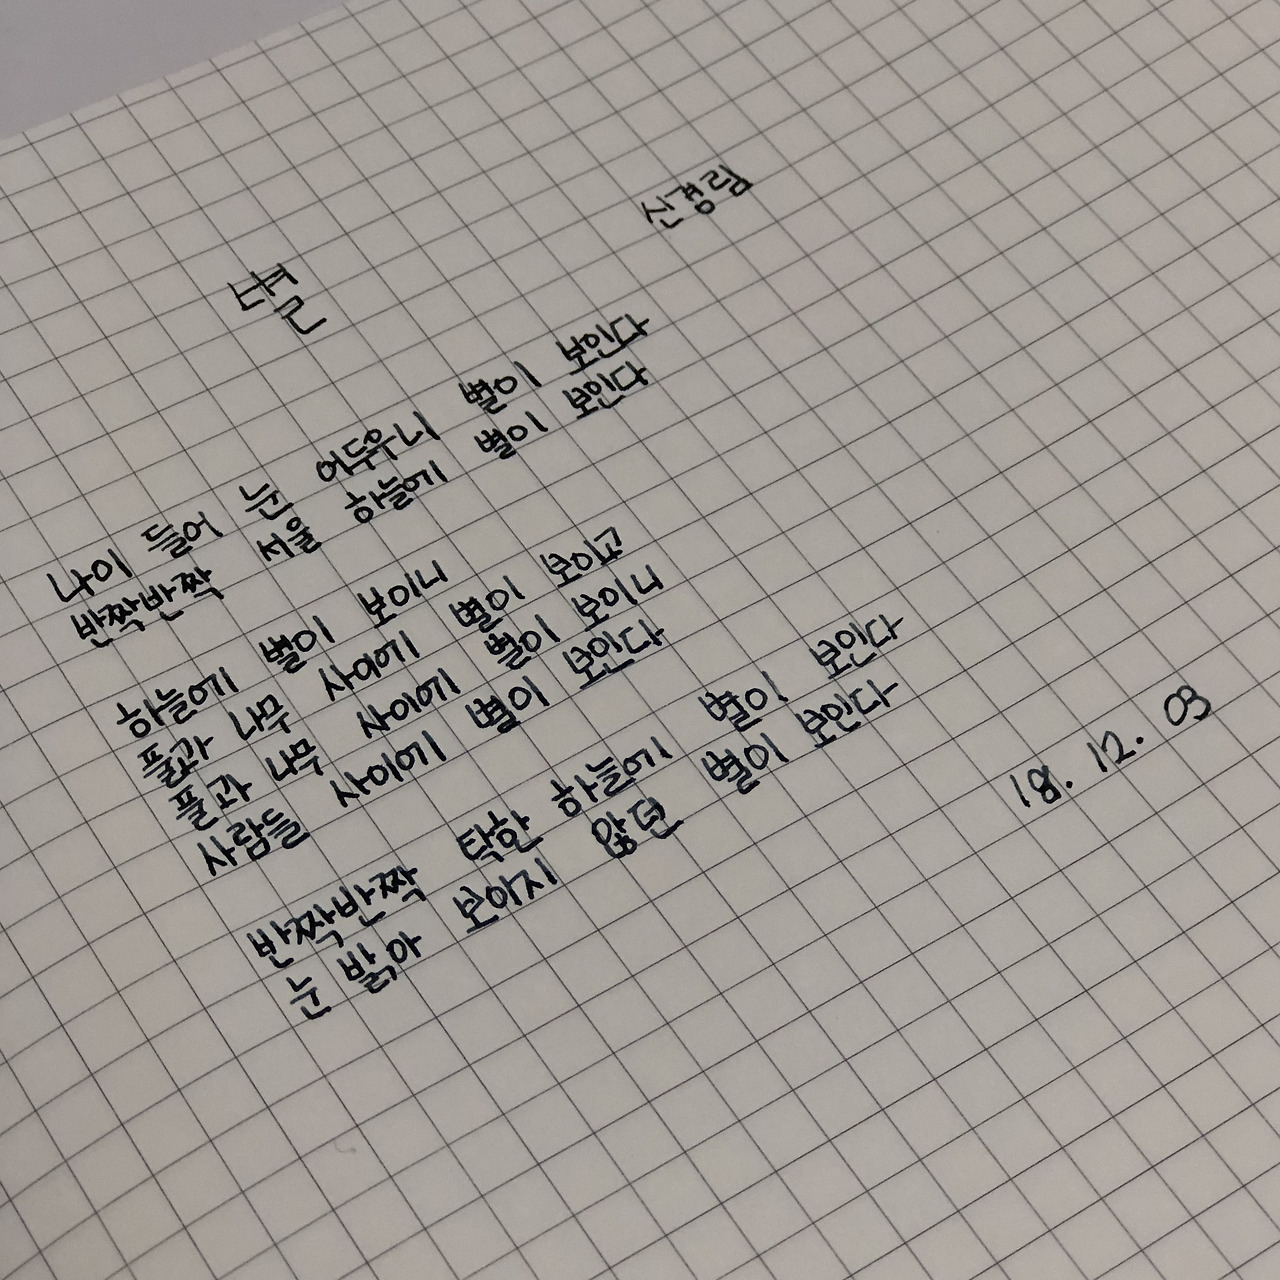 별
신경림
나이 들어 눈 어두우니 별이 보인다
반짝반짝 서울 하늘에 별이 보인다
하늘에 별이 보이니
풀과 나무 사이에 별이 보이고
풀과 나무 사이에 별이 보이니
사람들 사이에 별이 보인다
반짝반짝 탁한 하늘에 별이 보인다
눈 밝아 보아지 않던 별이 보인다
18. 12. 03